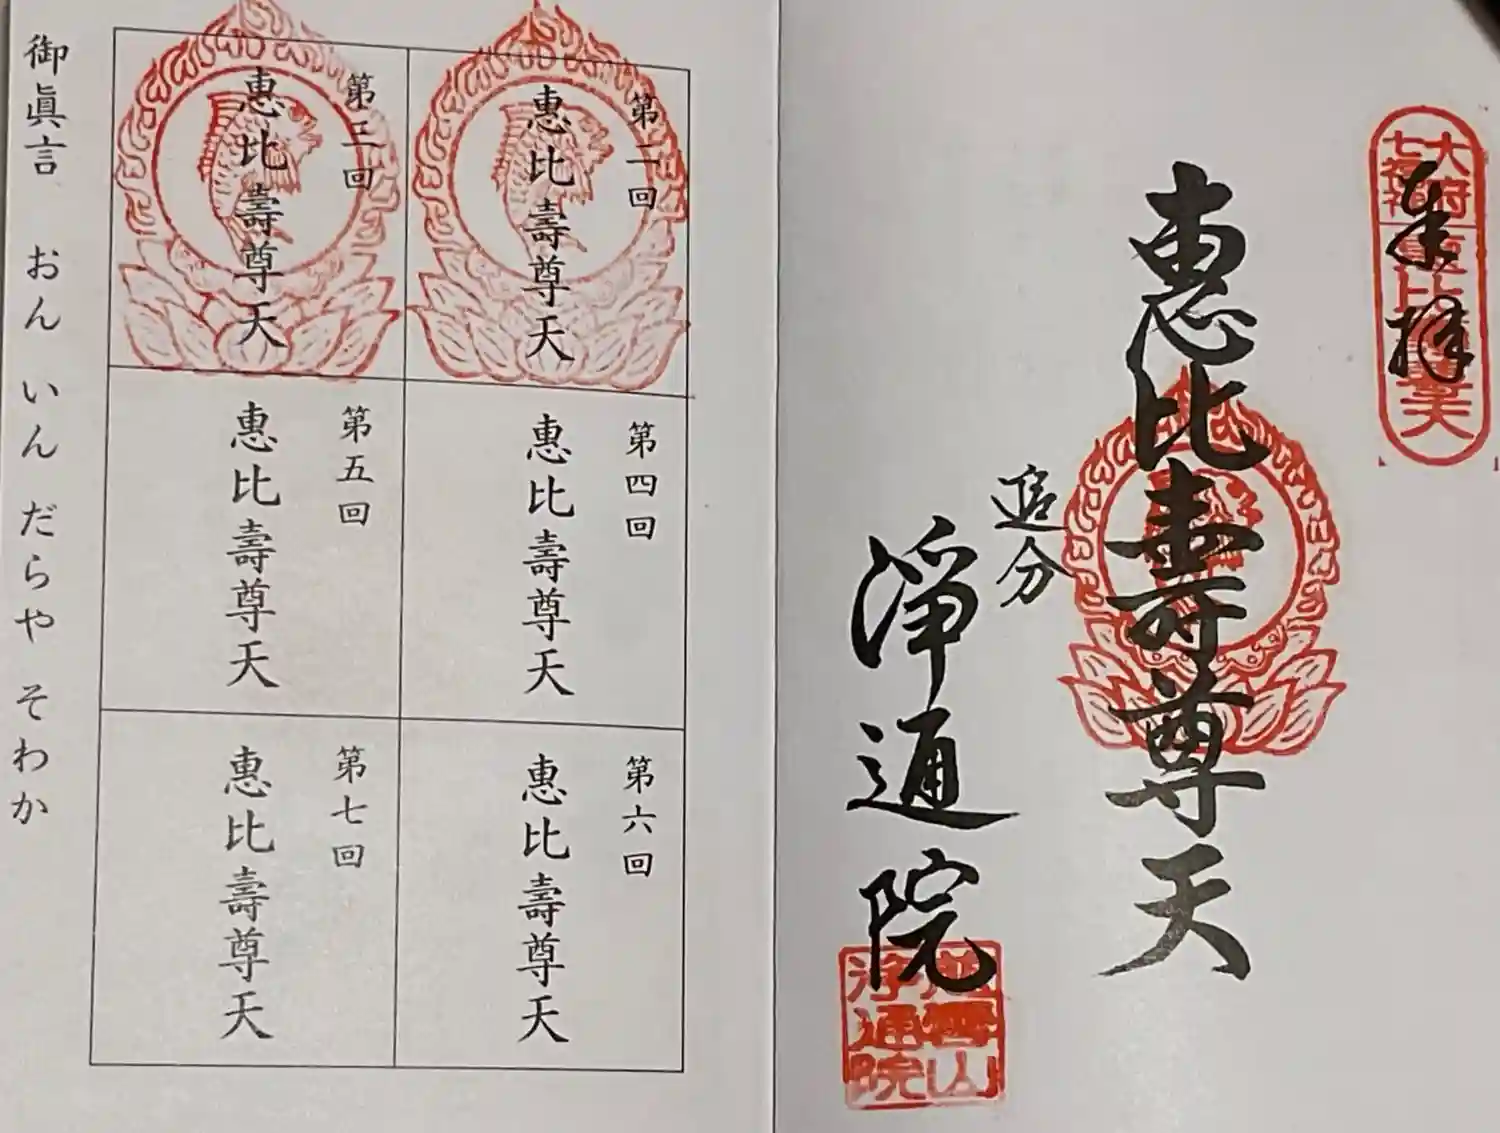 奉拝
大府七福神
恵比寿尊天
惠比壽尊天
追分
淨通院
淨通院
第二回
惠比壽尊天
第三回
惠比壽尊天
第四回
惠比壽尊天
第五回
惠比壽尊天
第六回
惠比壽尊天
第七回
惠比壽尊天
御眞言 おん いん だらや そわか